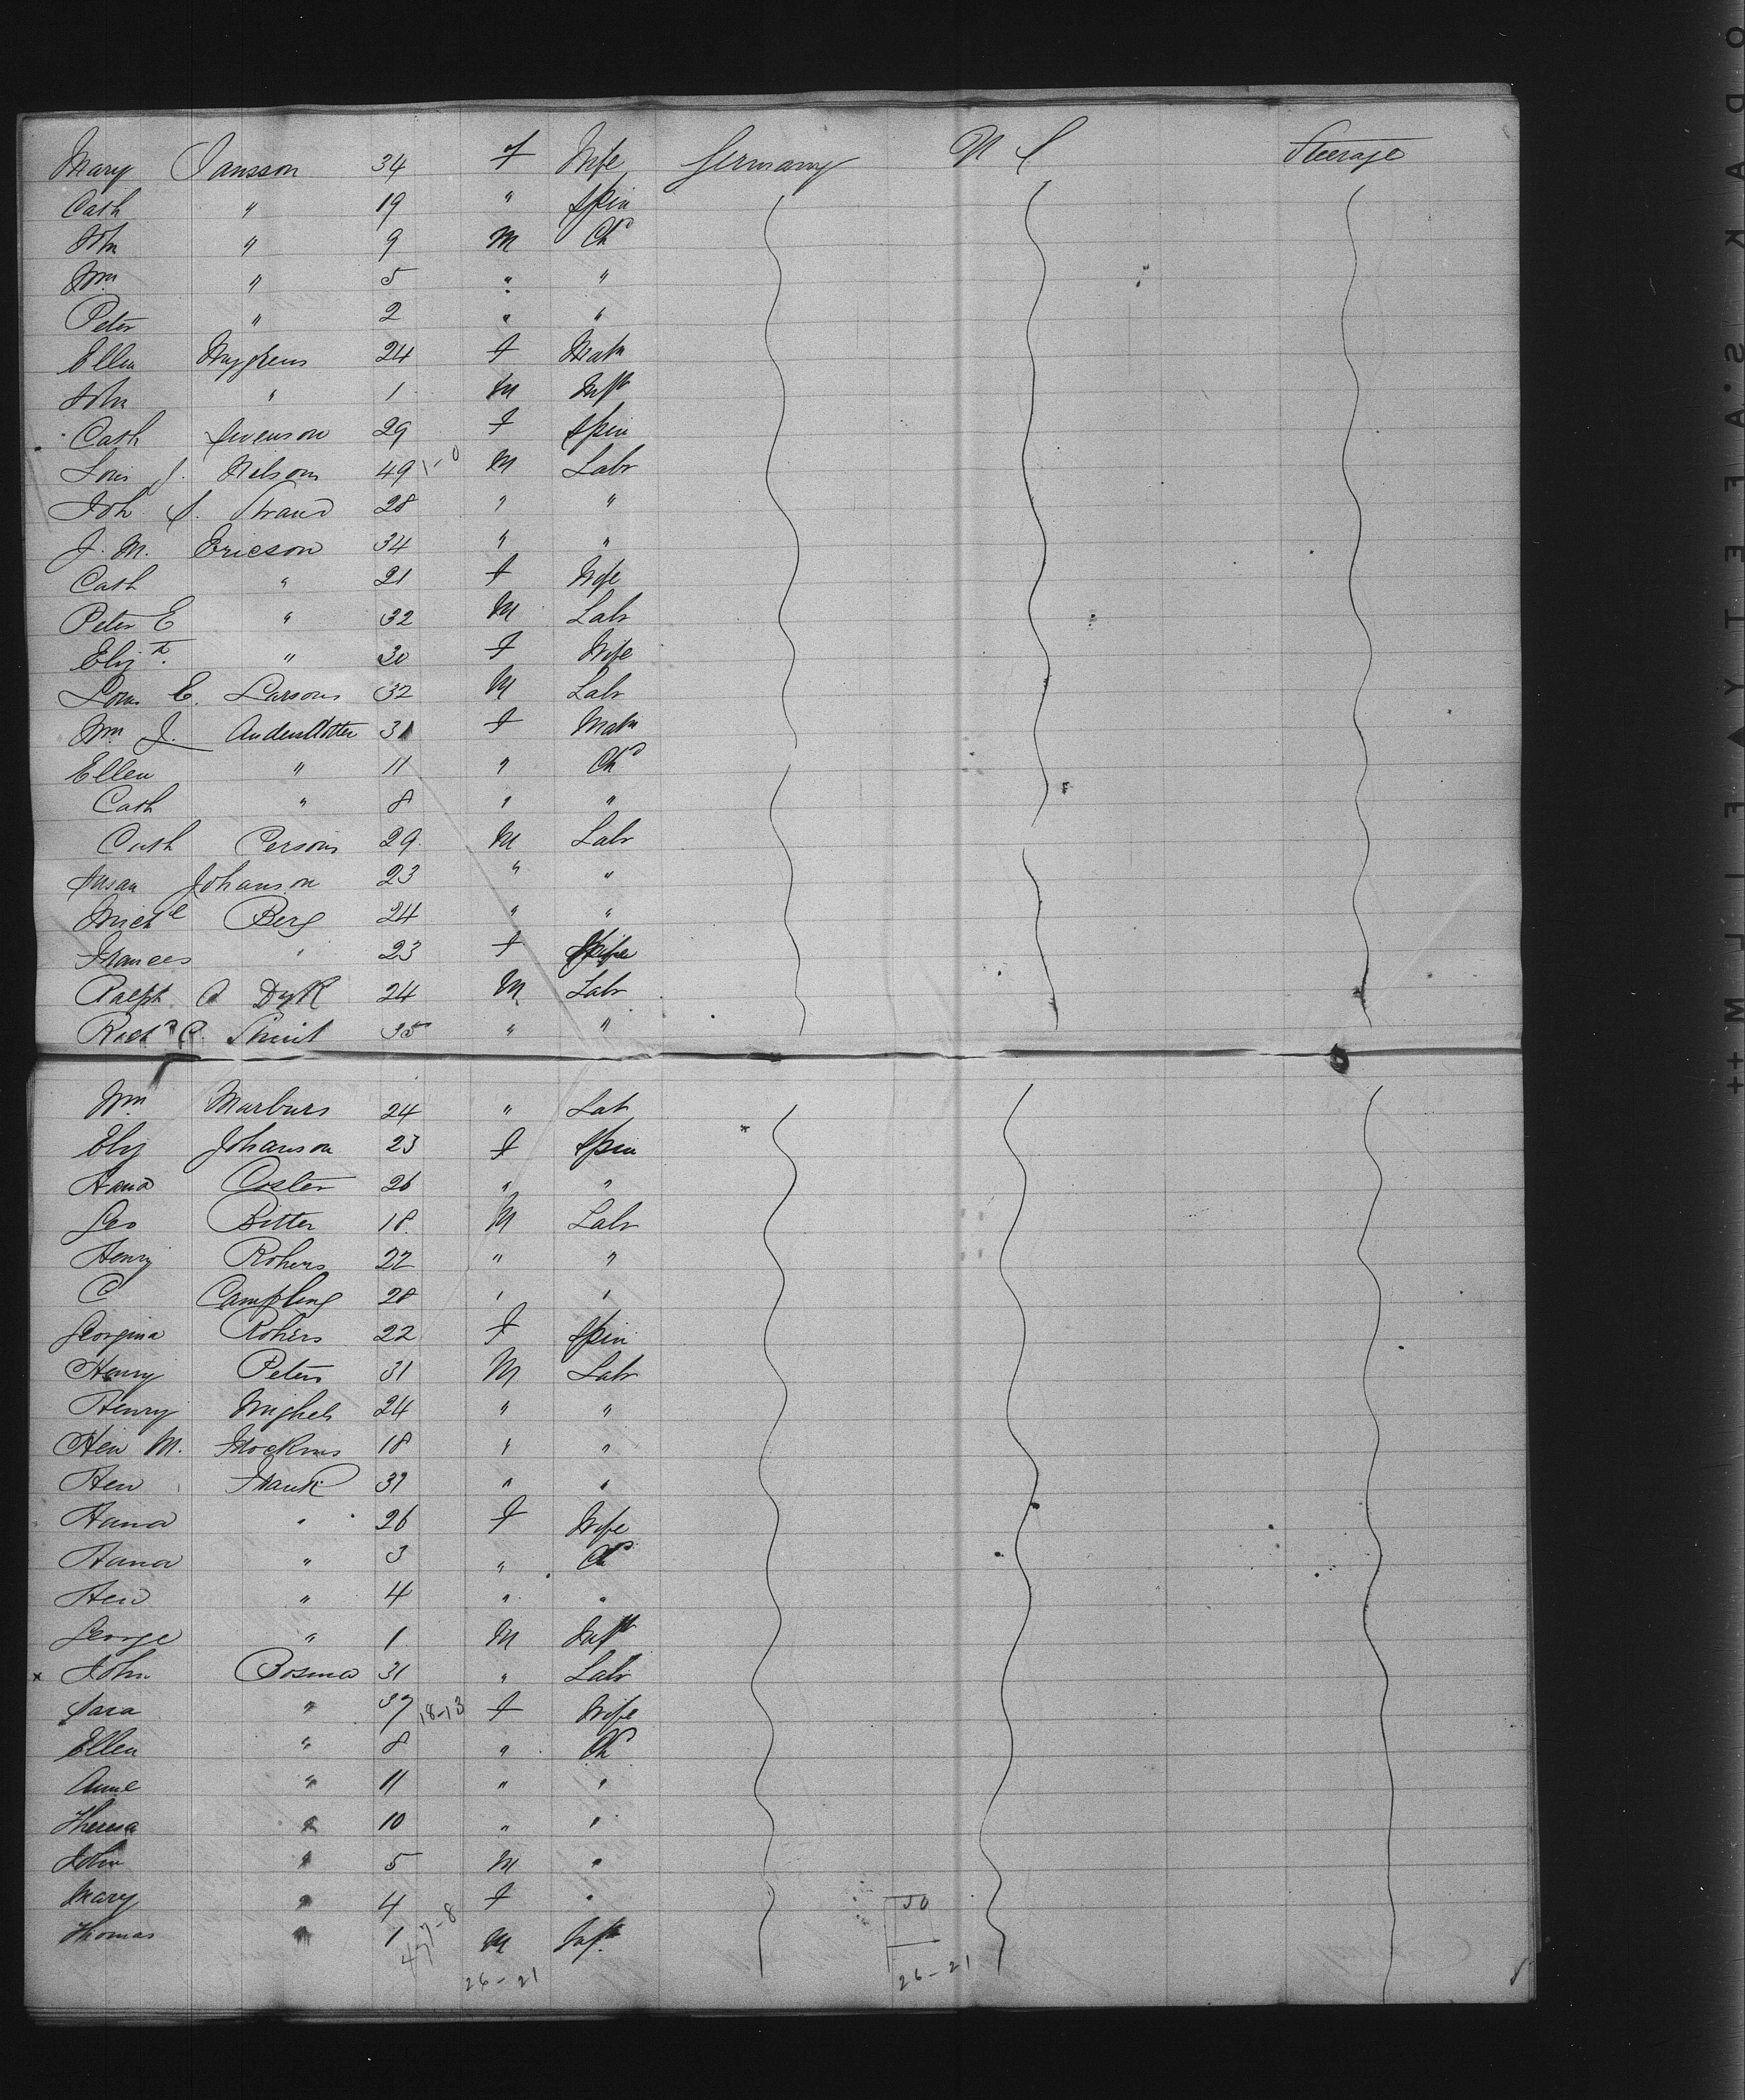 Mary Jansson 34 f Wife Germany U S Steerage
Cath " 19 " Spin
John " 9 M Chd
Wm " 5 " "
Peter " 2 " "
Ellen 24 f Matn
John " 1 M Inft
Cath Swenson 29 f Spin
Louis J. Nelson 49 1-0 M Labr
Joh S. Strand 28 " "
J. M. Ericson 34 " "
Cath " 21 f Wife
Peter E " 32 M Labr
Elizth " 30 f Wife
Louis E. Larsons 32 M Labr
Wm J. 31 f Matn
Ellen " 11 " Chd
Cath " 8 " "
Cath Persons 29 M Labr
Susan Johanson 23 " "
Michl Berg 24 " "
Frances " 23 f
Ralph Dyk 24 M Labr
Richd Smit 35 " "
Wm Marburs 24 " Lab
Eliz Johanson 23 f Spin
Hana Coster 26 " "
Geo Bitter 18 M Labr
Henry Rohers 22 " "
C Campling 28 " "
Georgina Rohers 22 f Spin
Henry Peters 31 M Labr
Henry Mighels 24 " "
Hen M. 18 " "
Hen Frank 31 " "
Hana " 26 f Wife
Hana " 3 " Chd
Hen " 4 " "
George " 1 M Inft
x John Bosma 31 " Labr
Sara " 37 18-13 f Wife
Ellen " 8 " Chd
Anne " 11 " "
Theresa " 10 " "
John " 5 M "
Mary " 4 f " 50
Thomas " 1 47-8 M Inft
26-21 26-21